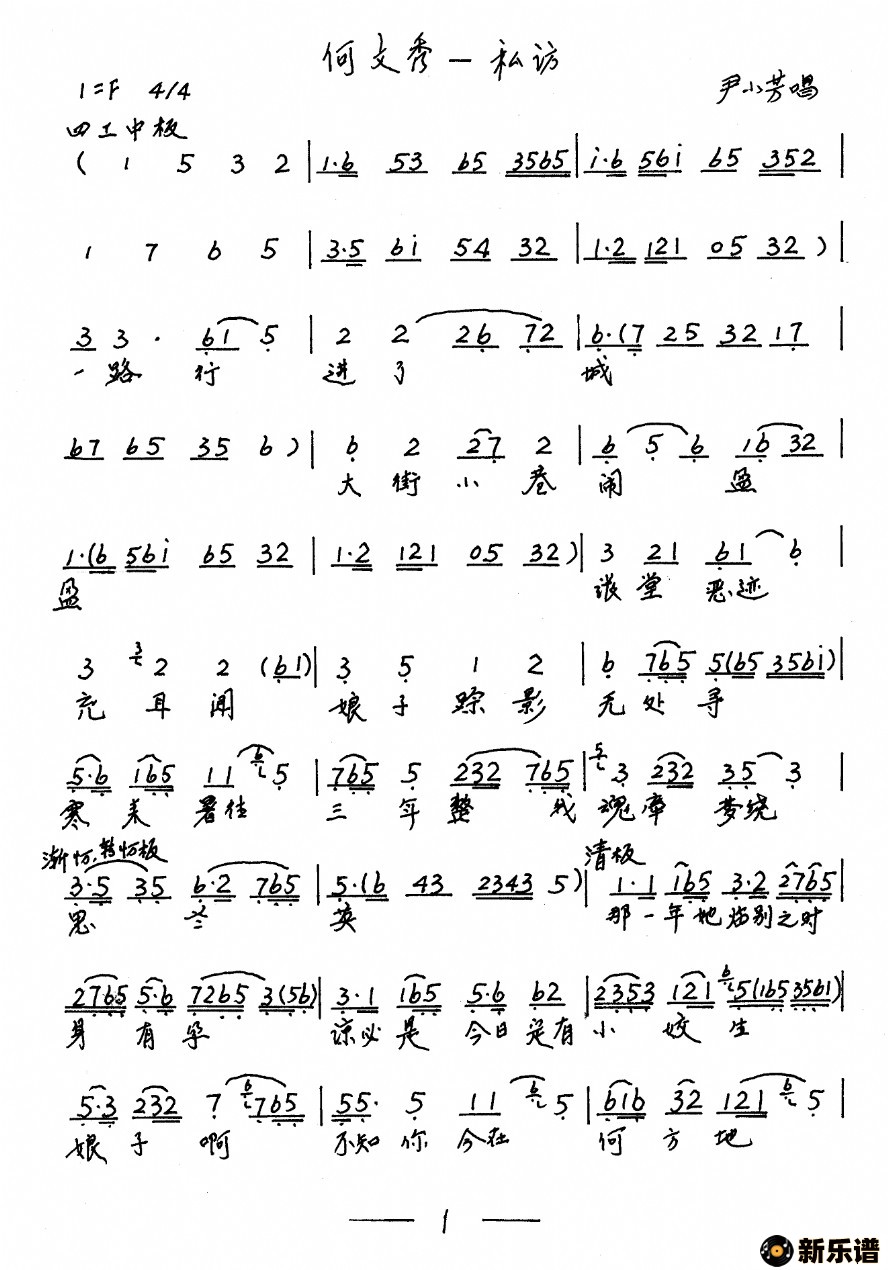 何文秀—私访
1=F 4/4
尹小芳唱
四工中板
( 1 5 3 2 | 1·6 53 65 3565 | i·6 56i 65 352 |
1 7 6 5 | 3·5 6i 54 32 | 1·2 121 05 32 ) |
3 3 · 61 5 | 2 2 26 72 | 6·(7 25 32 17 |
一路行 进了 城
67 65 35 6 ) | 6 2 27 2 | 6 5 6 16 32 |
大街小巷 闹 盈
1·(6 56i 65 32 | 1·2 121 05 32 ) | 3 21 61 6 |
盈 张堂恶迹
3 3 2 2 (61) | 3 5 1 2 | 6 765 5(65 356i) |
充耳闻 娘子踪影 无处寻
5·6 165 11 6 5 | 765 5 232 765 | 5 3 232 35 3 |
寒来暑往 三年整 我 魂牵梦绕
渐慢.转慢板 清板
3·5 35 6·2 765 | 5·(6 43 2343 5 ) | 1·1 165 3·2 2765 |
思兰 英 那一年她临别之时
2765 5·6 7265 3(56) | 3·1 165 5·6 62 | 2353 121 6 5(165 3561) |
身有孕 谅必是今日定有 小姣生
5·3 232 7 6 765 | 55· 5 11 6 5 | 616 32 121 6 5 |
娘子啊 不知你今在 何方地
— 1 —
新乐谱